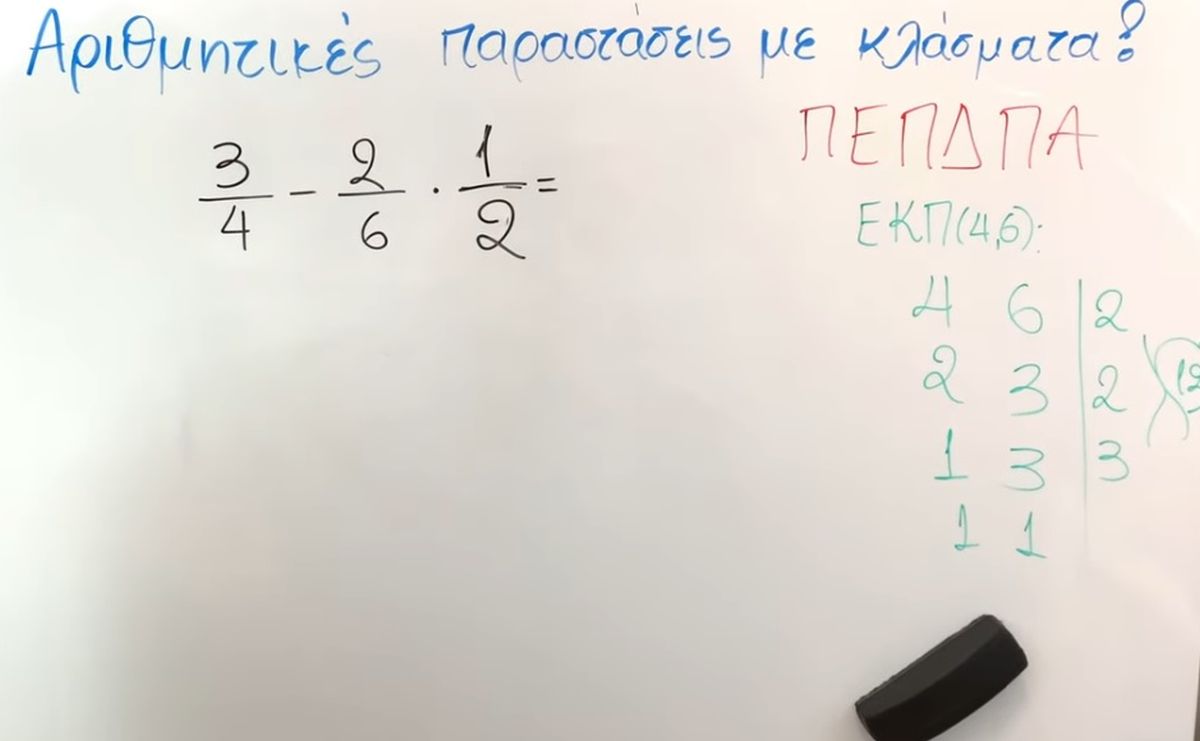 Αριθμητικές παραστάσεις με κλάσματα!
ΠΕΠΔΠΑ
3/4 - 2/6 · 1/2 =
ΕΚΠ(4,6):
4 6 | 2
2 3 | 2
1 3 | 3
1 1
12